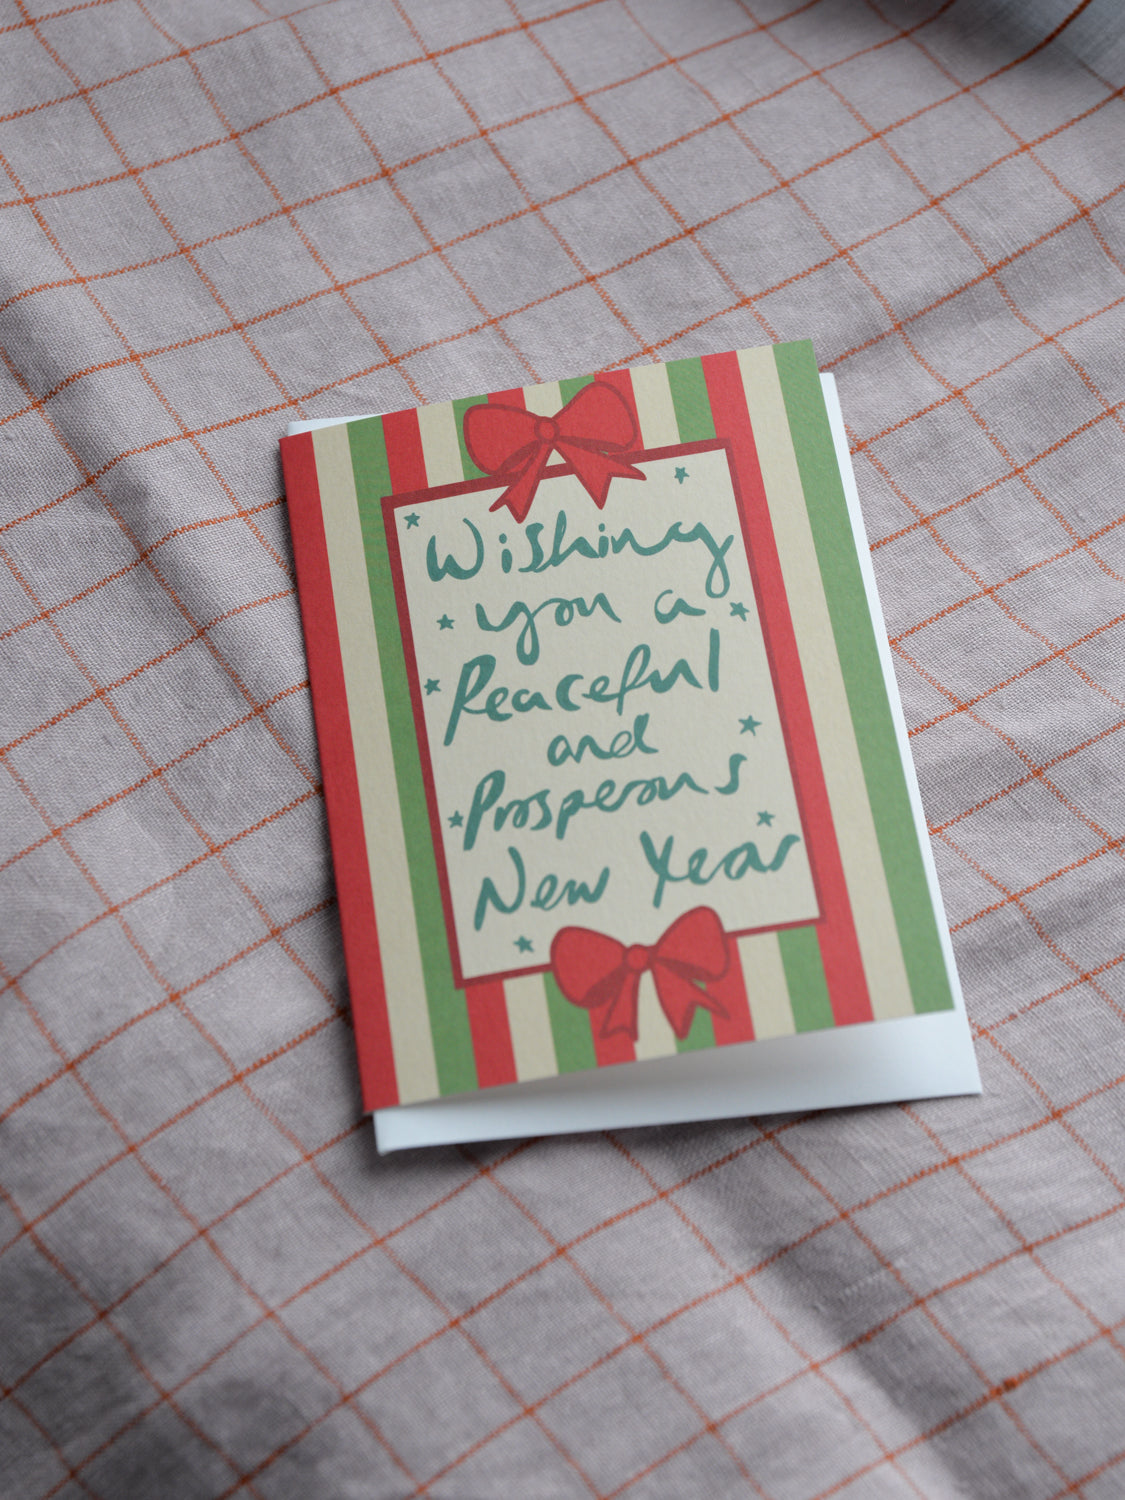 Wishing
you a
Peaceful
and
Prosperous
New Year